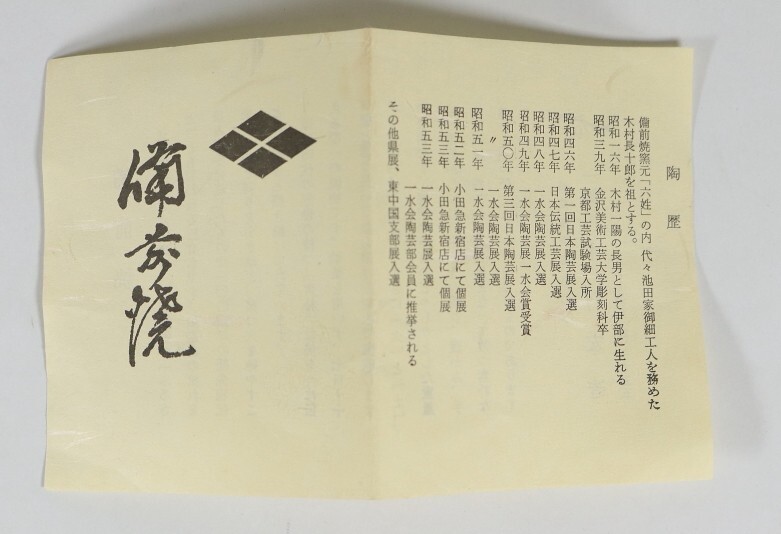 陶歴
備前焼窯元「六姓」の内 代々池田家御細工人を務めた
木村長十郎を祖とする。
昭和一六年 木村一陽の長男として伊部に生れる
昭和三九年 金沢美術工芸大学彫刻科卒
京都工芸試験場入所
昭和四六年 第一回日本陶芸展入選
昭和四七年 日本伝統工芸展入選
昭和四八年 一水会陶芸展入選
昭和四九年 一水会陶芸展一水会賞受賞
昭和五〇年 第三回日本陶芸展入選
〃 一水会陶芸展入選
昭和五一年 一水会陶芸展入選
昭和五二年 小田急新宿店にて個展
昭和五三年 小田急新宿店にて個展
一水会陶芸展入選
昭和五三年 一水会陶芸部会員に推挙される
その他県展、東中国支部展入選
備前焼